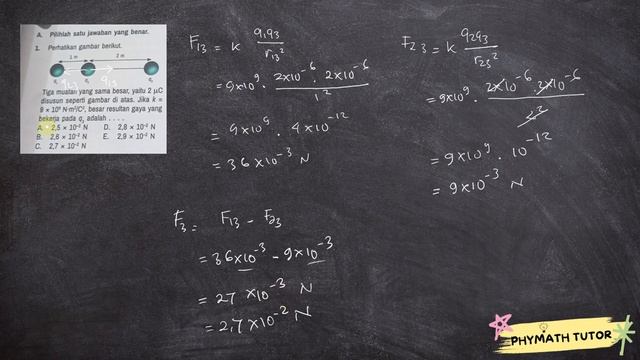 A. Pilihlah satu jawaban yang benar.
1. Perhatikan gambar berikut.
1 m 2 m
Tiga muatan yang sama besar, yaitu 2 μC
disusun seperti gambar di atas. Jika k =
9 × 10⁹ N·m²/C², besar resultan gaya yang
bekerja pada q, adalah . . . .
A. 2,5 × 10⁻² N D. 2,8 × 10⁻² N
B. 2,6 × 10⁻² N E. 2,9 × 10⁻² N
C. 2,7 × 10⁻² N
F₁₃ = k q₁q₃/r₁₃²
= 9×10⁹ · 2×10⁻⁶ · 2×10⁻⁶ / 1²
= 9×10⁹ · 4×10⁻¹²
= 36×10⁻³ N
F₂₃ = k q₂q₃/r₂₃²
= 9×10⁹ · 2×10⁻⁶ · 2×10⁻⁶ / 2²
= 9×10⁹ · 10⁻¹²
= 9×10⁻³ N
F₃ = F₁₃ - F₂₃
= 36×10⁻³ - 9×10⁻³
= 27 ×10⁻³ N
= 2,7 ×10⁻² N
PHYMATH TUTOR